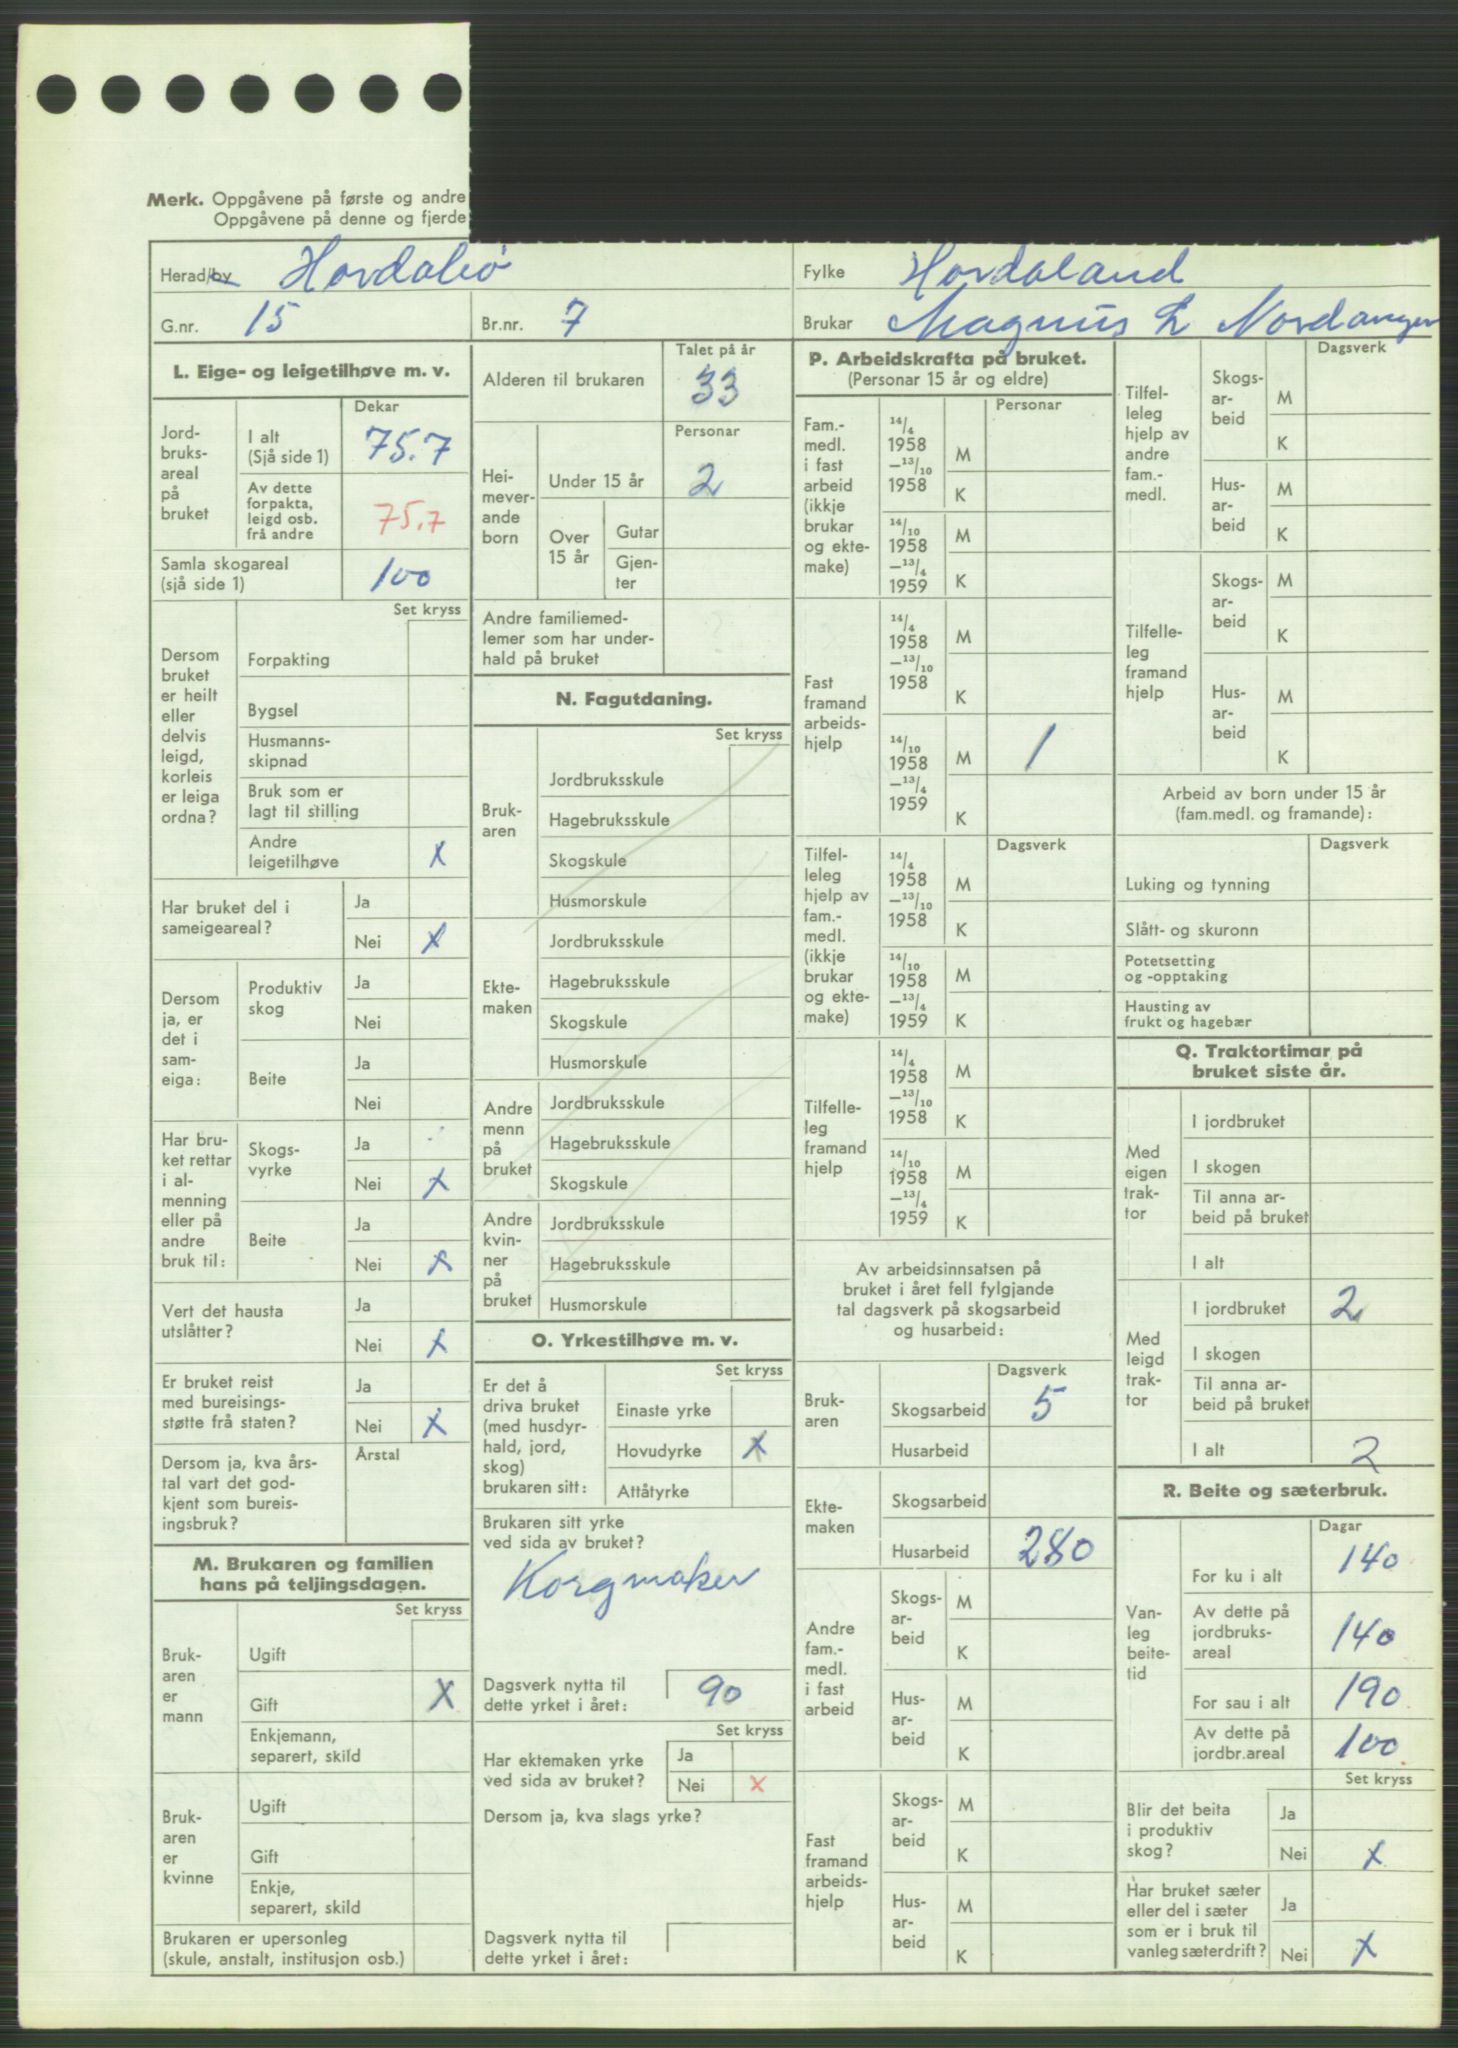 Merk. Oppgåvene på første og andre
Oppgåvene på denne og fjerde
Herad/by Hordabø
Fylke Hordaland
G.nr. 15
Br.nr. 7
Brukar Magnus L Nordanger
L. Eige- og leigetilhøve m. v.
Dekar
Jord-
bruks-
areal
på
bruket
I alt
(Sjå side 1)
75.7
Av dette
forpakta,
leigd osb.
frå andre
75.7
Samla skogareal
(sjå side 1)
100
Set kryss
Dersom
bruket
er heilt
eller
delvis
leigd,
korleis
er leiga
ordna?
Forpakting
Bygsel
Husmanns-
skipnad
Bruk som er
lagt til stilling
Andre
leigetilhøve
X
Har bruket del i
sameigeareal?
Ja
Nei X
Dersom
ja, er
det i
sam-
eiga:
Produktiv
skog
Ja
Nei
Beite
Ja
Nei
Har bru-
ket rettar
i al-
menning
eller på
andre
bruk til:
Skogs-
vyrke
Ja
Nei X
Beite
Ja
Nei X
Vert det hausta
utslåtter?
Ja
Nei X
Er bruket reist
med bureisings-
støtte frå staten?
Ja
Nei X
Dersom ja, kva års-
tal vart det god-
kjent som bureis-
ingsbruk?
Årstal
M. Brukaren og familien
hans på teljingsdagen.
Set kryss
Bruk-
aren
er
mann
Ugift
Gift X
Enkjemann,
separert, skild
Bruk-
aren
er
kvinne
Ugift
Gift
Enkje,
separert, skild
Brukaren er upersonleg
(skule, anstalt, institusjon osb.)
Talet på år
Alderen til brukaren 33
Personar
Hei-
mever-
ande
born
Under 15 år 2
Over
15 år
Gutar
Gjen-
ter
Andre familiemed-
lemer som har under-
hald på bruket
N. Fagutdaning.
Set kryss
Bruk-
aren
Jordbruksskule
Hagebruksskule
Skogskule
Husmorskule
Ekte-
maken
Jordbruksskule
Hagebruksskule
Skogskule
Husmorskule
Andre
menn
på
bruket
Jordbruksskule
Hagebruksskule
Skogskule
Andre
kvin-
ner
på
bruket
Jordbruksskule
Hagebruksskule
Husmorskule
O. Yrkestilhøve m. v.
Set kryss
Er det å
driva bruket
(med husdyr-
hald, jord,
skog)
brukaren sitt:
Einaste yrke
Hovudyrke X
Attåtyrke
Brukaren sitt yrke
ved sida av bruket?
Korgmaker
Dagsverk nytta til
dette yrket i året:
90
Set kryss
Har ektemaken yrke
ved sida av bruket?
Ja
Nei X
Dersom ja, kva slags yrke?
Dagsverk nytta til
dette yrket i året:
P. Arbeidskrafta på bruket.
(Personar 15 år og eldre)
Personar
Fam.-
medl.
i fast
arbeid
(ikkje
brukar
og ekte-
make)
14/4
1958
—13/10
1958
M
K
14/10
1958
—13/4
1959
M
K
Fast
framand
arbeids-
hjelp
14/4
1958
—13/10
1958
M
K
14/10
1958
—13/4
1959
M 1
K
Dagsverk
Tilfel-
leleg
hjelp av
fam.-
medl.
(ikkje
brukar
og ekte-
make)
14/4
1958
—13/10
1958
M
K
14/10
1958
—13/4
1959
M
K
Tilfelle-
leg
framand
hjelp
14/4
1958
—13/10
1958
M
K
14/10
1958
—13/4
1959
M
K
Av arbeidsinnsatsen på
bruket i året fell fylgjande
tal dagsverk på skogsarbeid
og husarbeid:
Dagsverk
Bruk-
aren
Skogsarbeid 5
Husarbeid
Ekte-
maken
Skogsarbeid
Husarbeid 280
Andre
fam.-
medl.
i fast
arbeid
Skogs-
ar-
beid
M
K
Hus-
ar-
beid
M
K
Fast
framand
arbeids-
hjelp
Skogs-
ar-
beid
M
K
Hus-
ar-
beid
M
K
Dagsverk
Tilfel-
leleg
hjelp av
andre
fam.-
medl.
Skogs-
ar-
beid
M
K
Hus-
ar-
beid
M
K
Tilfelle-
leg
framand
hjelp
Skogs-
ar-
beid
M
K
Hus-
ar-
beid
M
K
Arbeid av born under 15 år
(fam.medl. og framande):
Dagsverk
Luking og tynning
Slått- og skuronn
Potetsetting
og -opptaking
Hausting av
frukt og hagebær
Q. Traktortimar på
bruket siste år.
Med
eigen
trak-
tor
I jordbruket
I skogen
Til anna ar-
beid på bruket
I alt
Med
leigd
trak-
tor
I jordbruket 2
I skogen
Til anna ar-
beid på bruket
I alt 2
R. Beite og sæterbruk.
Dagar
Van-
leg
beite-
tid
For ku i alt 140
Av dette på
jordbruks-
areal
140
For sau i alt 190
Av dette på
jordbr.areal
100
Set kryss
Blir det beita
i produktiv
skog?
Ja
Nei X
Har bruket sæter
eller del i sæter
som er i bruk til
vanleg sæterdrift?
Ja
Nei X